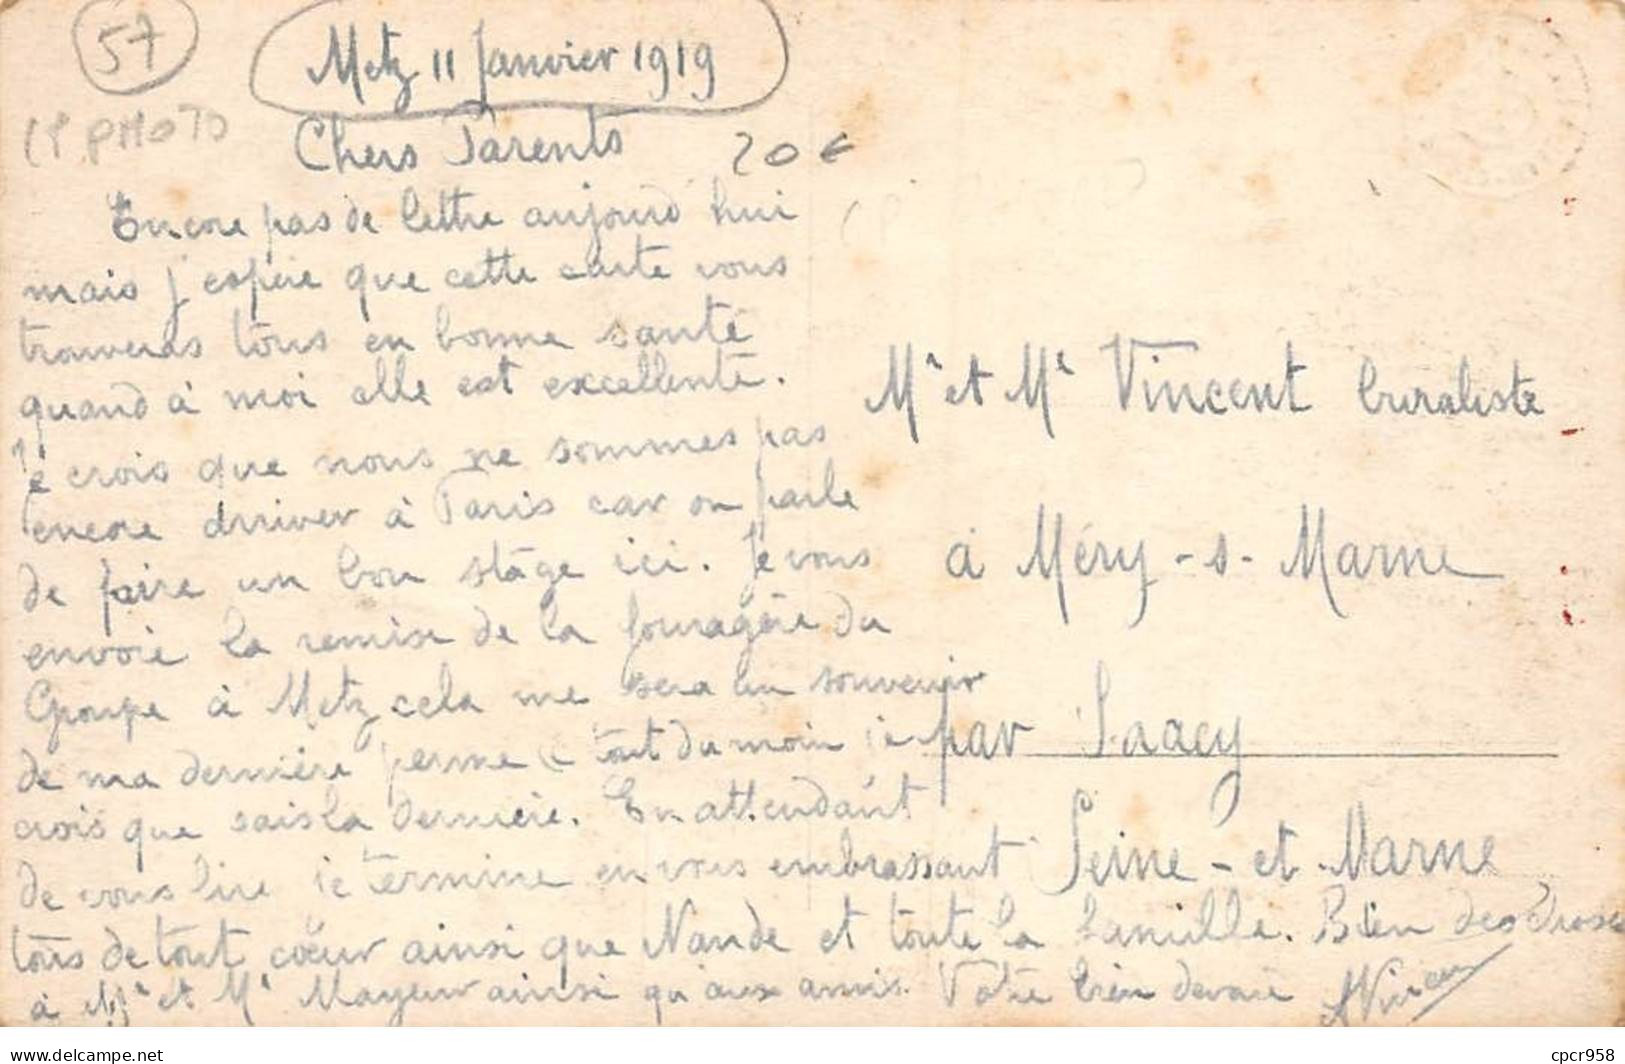 57
Metz 11 Janvier 1919
CP. PHOTO
Chers Parents
20 €
Encore pas de lettre aujourd'hui
mais j'espère que cette carte vous
trouveras tous en bonne santé
quand à moi elle est excellente.
Je crois que nous ne sommes pas
encore arriver à Paris car on parle
de faire un bon stage ici. Je vous
envoie la remise de la fouragère du
Groupe à Metz cela me sera un souvenir
de ma dernière perme tout du moin je
crois que sais la dernière. En attendant
de vous lire je termine en vous embrassant
tous de tout cœur ainsi que Nande et toute la famille. Bien des choses
à Mr et Me Mayeur ainsi qu'aux amis. Votre bien
Vincent
Mr et Me Vincent buraliste
à Méry-s-Marne
par Saacy
Seine-et-Marne
www.delcampe.net
cpcr958